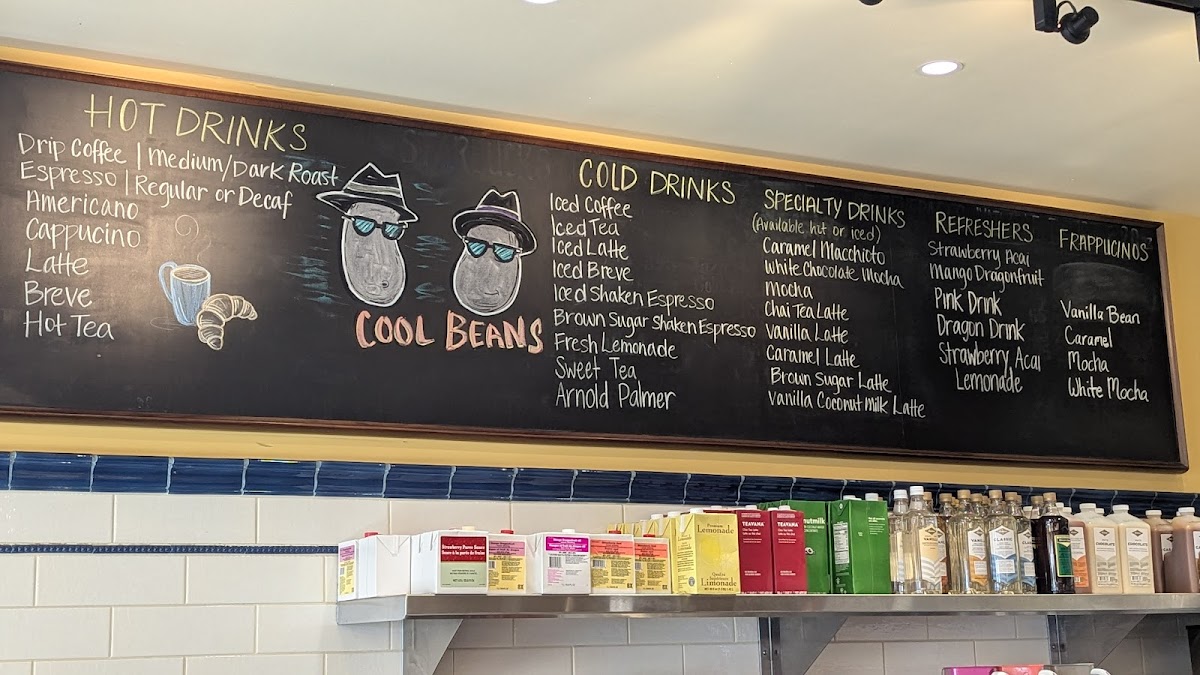 HOT DRINKS
Drip Coffee | Medium/Dark Roast
Espresso | Regular or Decaf
Americano
Cappucino
Latte
Breve
Hot Tea
COOL BEANS
COLD DRINKS
Iced Coffee
Iced Tea
Iced Latte
Iced Breve
Iced Shaken Espresso
Brown Sugar Shaken Espresso
Fresh Lemonade
Sweet Tea
Arnold Palmer
SPECIALTY DRINKS
(Available hot or iced)
Caramel Macchioto
White Chocolate Mocha
Mocha
Chai Tea Latte
Vanilla Latte
Caramel Latte
Brown Sugar Latte
Vanilla Coconut Milk Latte
REFRESHERS
Strawberry Acai
Mango Dragonfruit
Pink Drink
Dragon Drink
Strawberry Acai
Lemonade
FRAPPUCINOS
Vanilla Bean
Caramel
Mocha
White Mocha
Strawberry Puree Sauce
Lemonade
Limonade
TEAVANA
TEAVANA
nutmilk